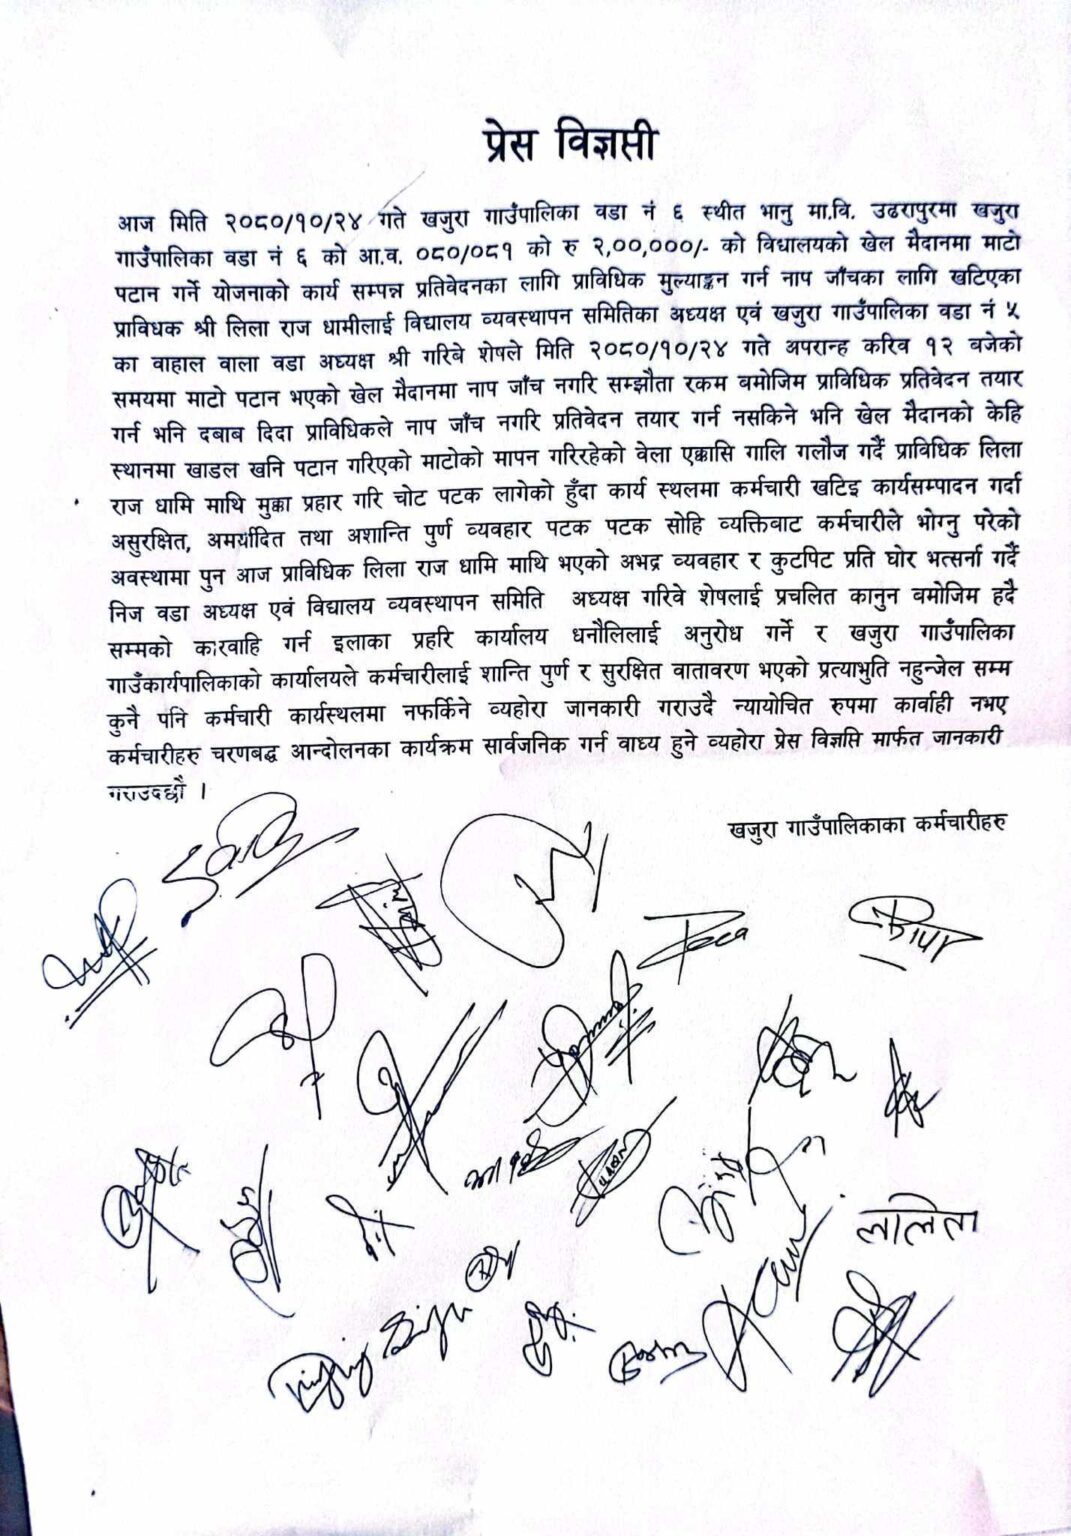 प्रेस विज्ञप्ती
आज मिति २०८०/१०/२४ गते खजुरा गाउँपालिका वडा नं ६ स्थीत भानु मा.वि. उढरापुरमा खजुरा
गाउँपालिका वडा नं ६ को आ.व. ०८०/०८१ को रु २,00,000/- को विधालयको खेल मैदानमा माटो
पटान गर्ने योजनाको कार्य सम्पन्न प्रतिवेदनका लागि प्राविधिक मुल्याङ्कन गर्न नाप जाँचका लागि खटिएका
प्राविधक श्री लिला राज धामीलाई विद्यालय व्यवस्थापन समितिका अध्यक्ष एवं खजुरा गाउँपालिका वडा नं ५
का वाहाल वाला वडा अध्यक्ष श्री गरिबे शेषले मिति २०८०/१०/२४ गते अपरान्ह करिव १२ बजेको
समयमा माटो पटान भएको खेल मैदानमा नाप जाँच नगरि सम्झौता रकम बमोजिम प्राविधिक प्रतिवेदन तयार
गर्न भनि दबाब दिदा प्राविधिकले नाप जाँच नगरि प्रतिवेदन तयार गर्न नसकिने भनि खेल मैदानको केहि
स्थानमा खाडल खनि पटान गरिएको माटोको मापन गरिरहेको वेला एक्कासि गालि गलौज गर्दै प्राविधिक लिला
राज धामि माथि मुक्का प्रहार गरि चोट पटक लागेको हुँदा कार्य स्थलमा कर्मचारी खटिइ कार्यसम्पादन गर्दा
असुरक्षित, अमर्यादित तथा अशान्ति पुर्ण व्यवहार पटक पटक सोहि व्यक्तिबाट कर्मचारीले भोग्नु परेको
अवस्थामा पुन आज प्राविधिक लिला राज धामि माथि भएको अभद्र व्यवहार र कुटपिट प्रति घोर भत्सर्ना गर्दै
निज वडा अध्यक्ष एवं विद्यालय व्यवस्थापन समिति अध्यक्ष गरिवे शेषलाई प्रचलित कानुन वमोजिम हदै
सम्मको कारवाहि गर्न इलाका प्रहरि कार्यालय धनौलिलाई अनुरोध गर्ने र खजुरा गाउँपालिका
गाउँकार्यपालिकाको कार्यालयले कर्मचारीलाई शान्ति पुर्ण र सुरक्षित वातावरण भएको प्रत्याभुति नहुन्जेल सम्म
कुनै पनि कर्मचारी कार्यस्थलमा नफर्किने व्यहोरा जानकारी गराउदै न्यायोचित रुपमा कार्वाही नभए
कर्मचारीहरु चरणबद्ध आन्दोलनका कार्यक्रम सार्वजनिक गर्न वाध्य हुने व्यहोरा प्रेस विज्ञप्ति मार्फत जानकारी
गराउदछौ ।
खजुरा गाउँपालिकाका कर्मचारीहरु
ललिता